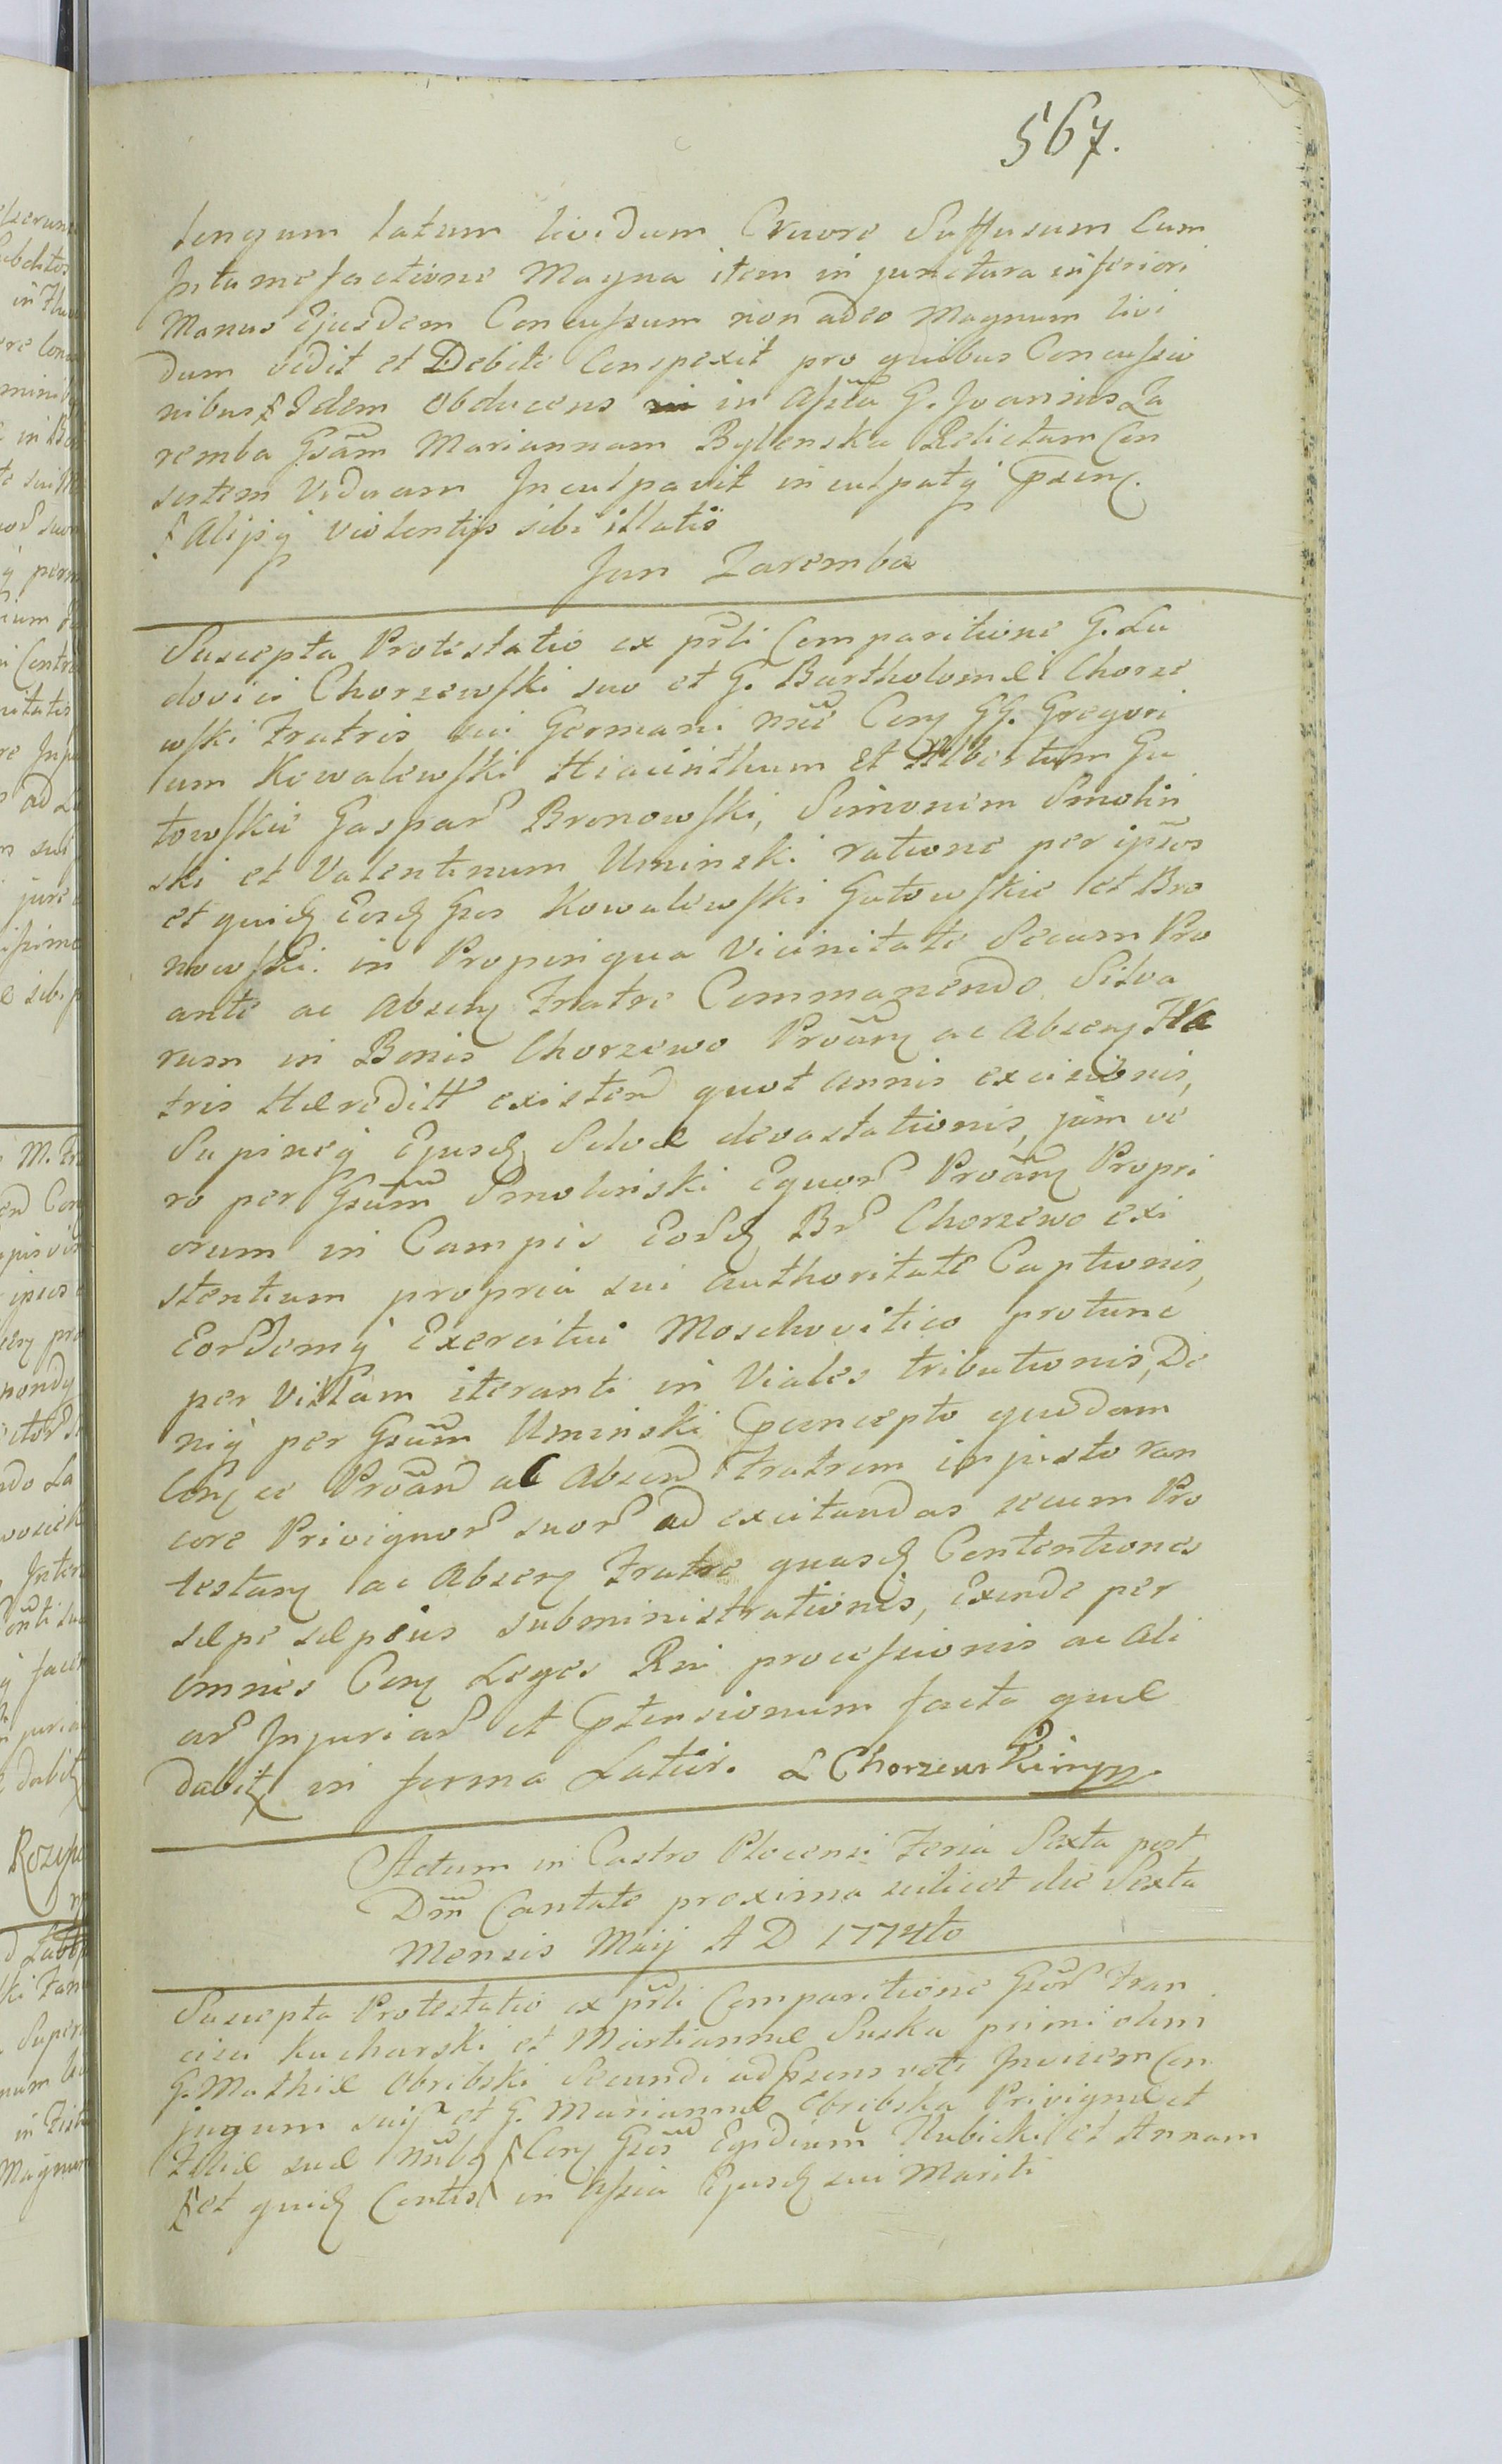 567.
longum latum lividum Cruore Suffusum Cum
Intumefactione Magna item in junctura inferiori
Manus Ejusdem Concussum non adeo Magnum livi
dum vidit et Debite Conspexit pro quibus Concussio
nibus Idem Obducens in Assta G. Joannis Za
remba Gsam Mariannam Bylenska Relictam Con
sortem Viduam Inculpavit inculpatq
Alijsq violentijs sibi illatis
Jan Zaremba
Suscepta Protestatio ex prsli Comparitione G. Lu
dovici Chorzewski suo et G. Bartholomæi Chorze
wski Fratris sui Germani nne Con GG. Gregori
um Kowalewski Hiacinthum et Albertum Gu
towskie Gaspar Bronowski, Simonem Smolin
ski et Valentinum Uminski ratione per ipsos
et quid Eosd Gsos Kowalewski Gutowskie et Bro
nowski in Propinqua Vicinitate Secum Pro
ante ac Absen Fratre Commanendo Silva
rum in Bonis Chorzewo Proan ac Absen Fra
tris Hæreditt existen quot annis excisionis,
Supineq Ejusd Silvæ devastationis, jam ve
ro per Gsum Smolinski Equor Proan Propri
orum in Campis Eord Br Chorzewo exi
stentium propria sui authoritate Captionis,
Eordemq Exercitui Moschovitico protunc
per Villam iteranti in Viales tributionis, De
niq per Gsum Uminski Concepto quodam
Con ac Proan ac Absen Fratrem injusto ran
core Privignor suor ad excitandas secum Pro
testan ac Absen Fratre quasd Contentiones
sæpe sæpius subministrationis, exinde per
omnes Con Leges Rni processionis ac Ali
ar Injuriar et Ptensionum facta quæ
dabit in forma Latior. L Chorzewski mpp
Actum in Castro Plocensi Feria Sexta post
Dnn Cantate proxima scilicet die Sexta
Mensis Maij A D 1774to
Suscepta Protestatio ex prsli Comparitione Gsor Fran
cisci Kucharski et Martiannæ Suska primi olim
G. Mathiæ Obribski Secundi ad Psens voti Invicem Con
jugum suis et G. Mariannæ Obribska Privignæ et
Filiæ suæ nnbq Con Gsos Egidium Rubicki et Annam
et quid Contis in Assia Ejusd sui Mariti